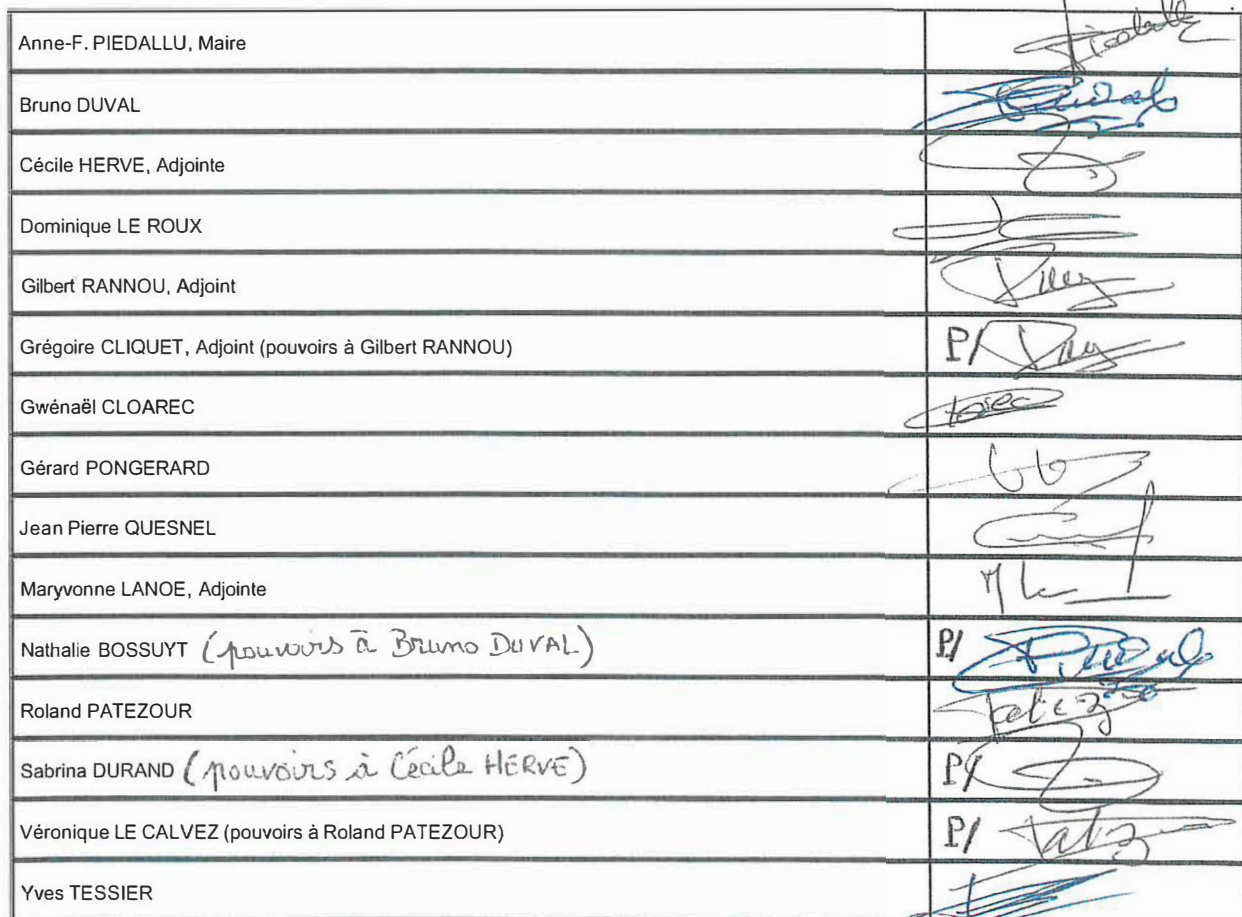 Anne-F. PIEDALLU, Maire
Bruno DUVAL
Cécile HERVE, Adjointe
Dominique LE ROUX
Gilbert RANNOU, Adjoint
Grégoire CLIQUET, Adjoint (pouvoirs à Gilbert RANNOU) P/
Gwénaël CLOAREC
Gérard PONGERARD
Jean Pierre QUESNEL
Maryvonne LANOE, Adjointe
Nathalie BOSSUYT (pouvoirs à Bruno DUVAL) P/
Roland PATEZOUR
Sabrina DURAND (pouvoirs à Cécile HERVE) P/
Véronique LE CALVEZ (pouvoirs à Roland PATEZOUR) P/
Yves TESSIER